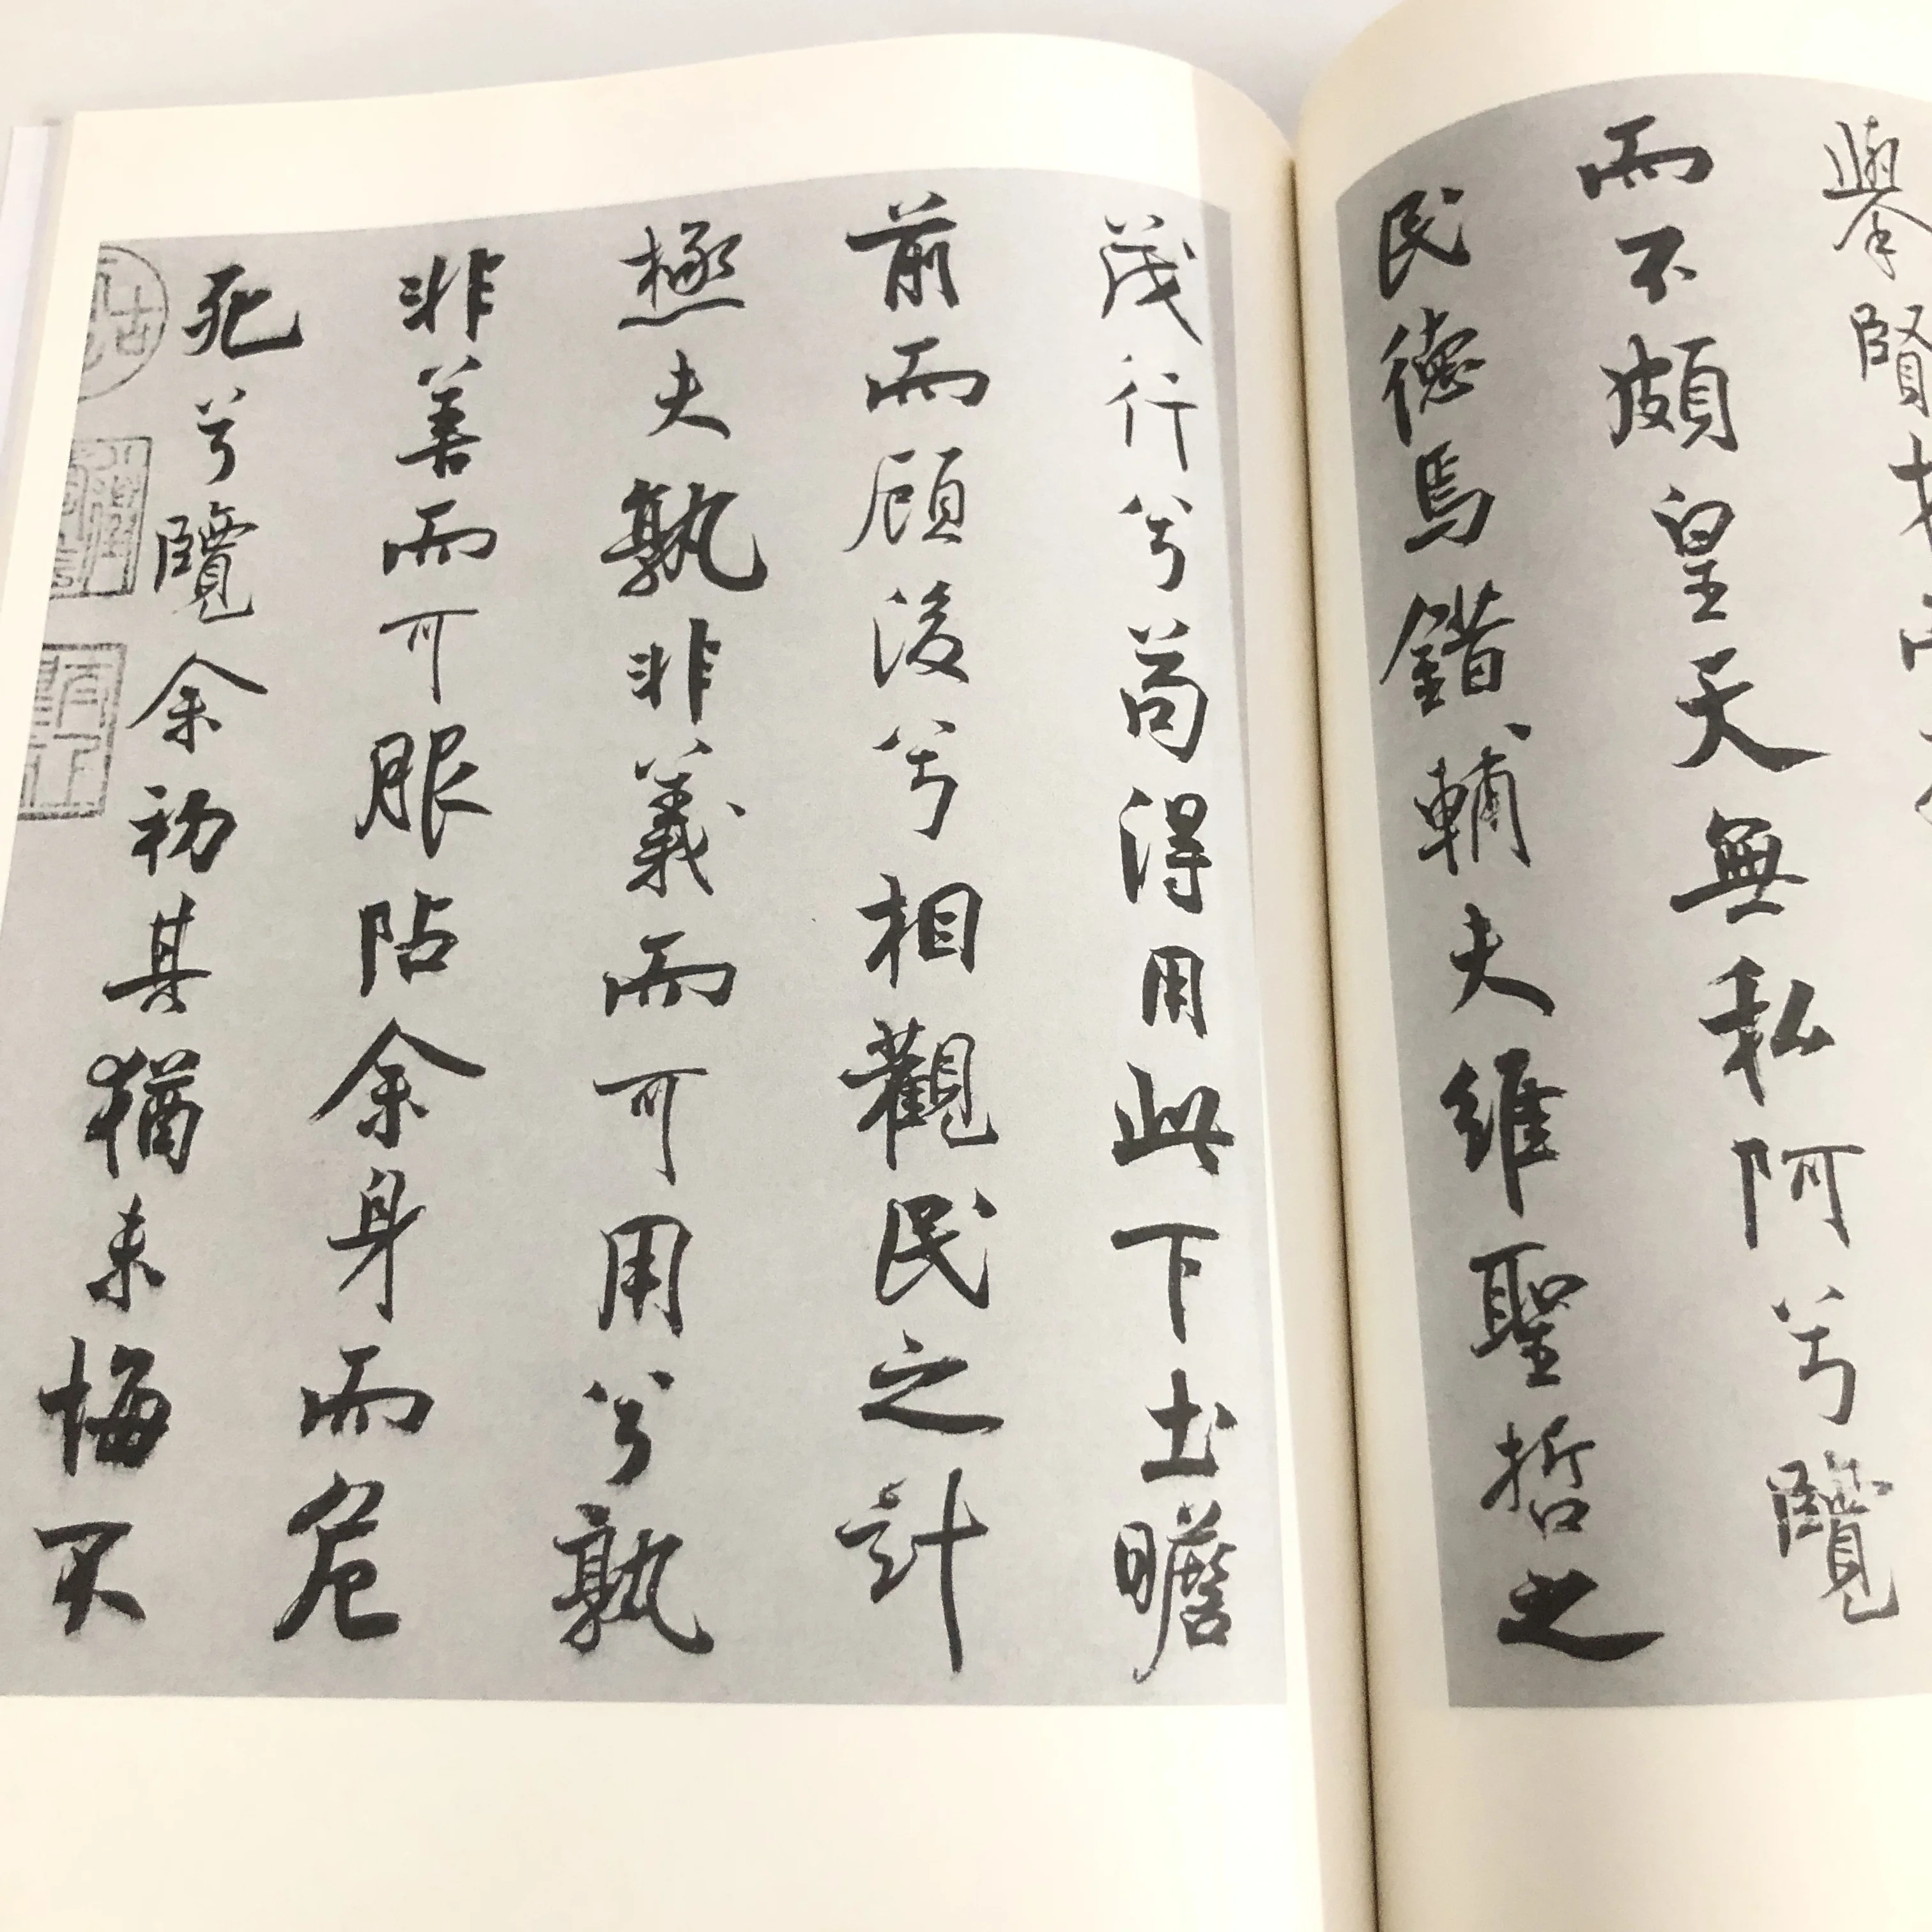 舉賢
而不頗皇天無私阿兮覽
民德焉錯輔夫維聖哲之
茂行兮苟得用此下土瞻
前而顧後兮相觀民之計
極夫孰非義而可用兮孰
非善而可服阽余身而危
死兮覽余初其猶未悔不